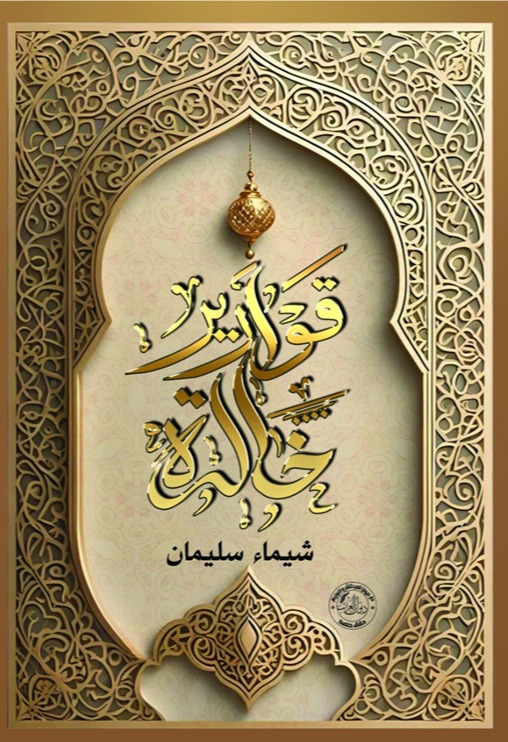 قوارير
خالدة
شيماء سليمان